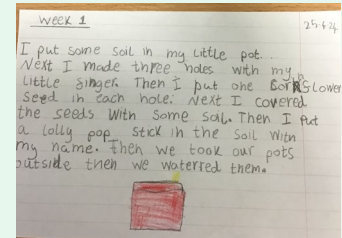 Week 1
25.4.24
I put some soil in my little pot.
Next I made three holes with my
little finger. Then I put one
seed in each hole. Next I covered
the seeds with some soil. Then I put
a lolly pop stick in the soil with
my name. Then we took our pots
outside then we waterred them.